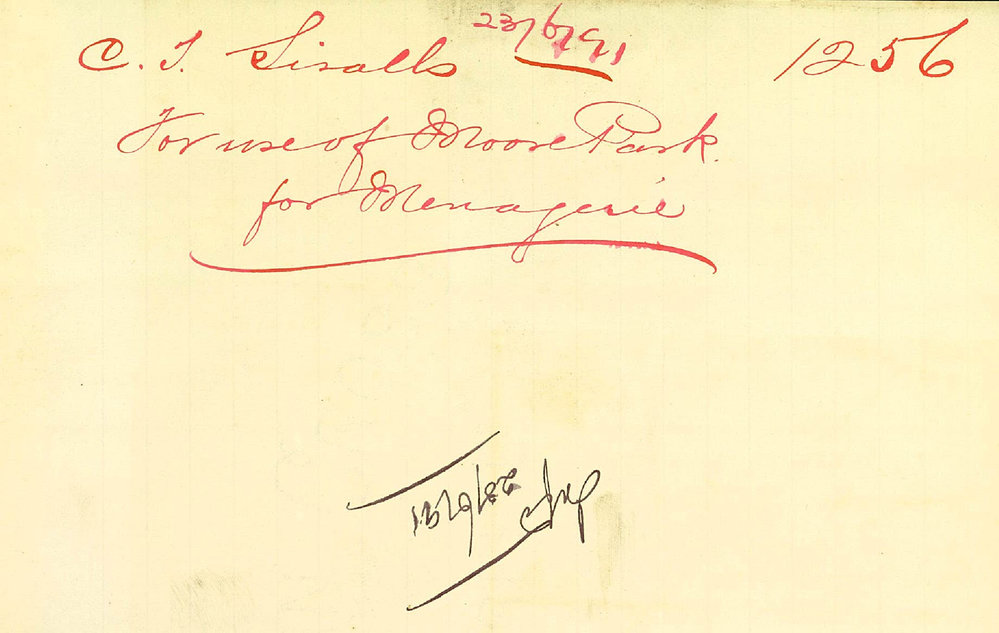 23/6/91
C. T. 1256
For use of Moore Park.
for Menagerie
23/6/91